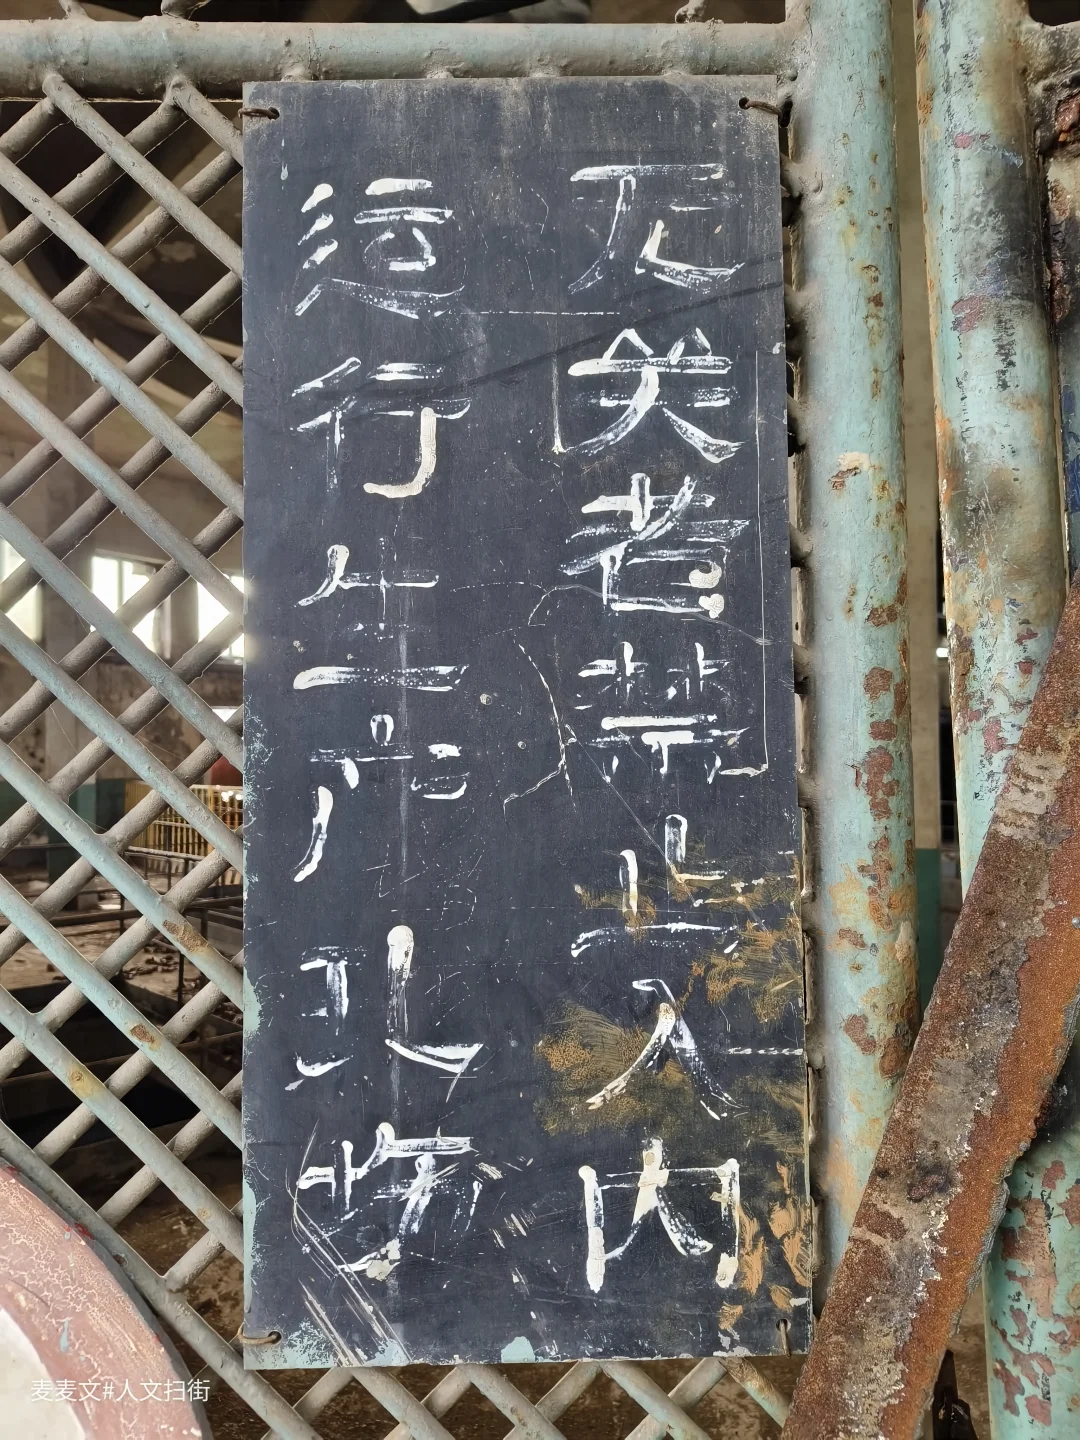 无关者禁止入内
运行生产现场
麦麦文#人文扫街